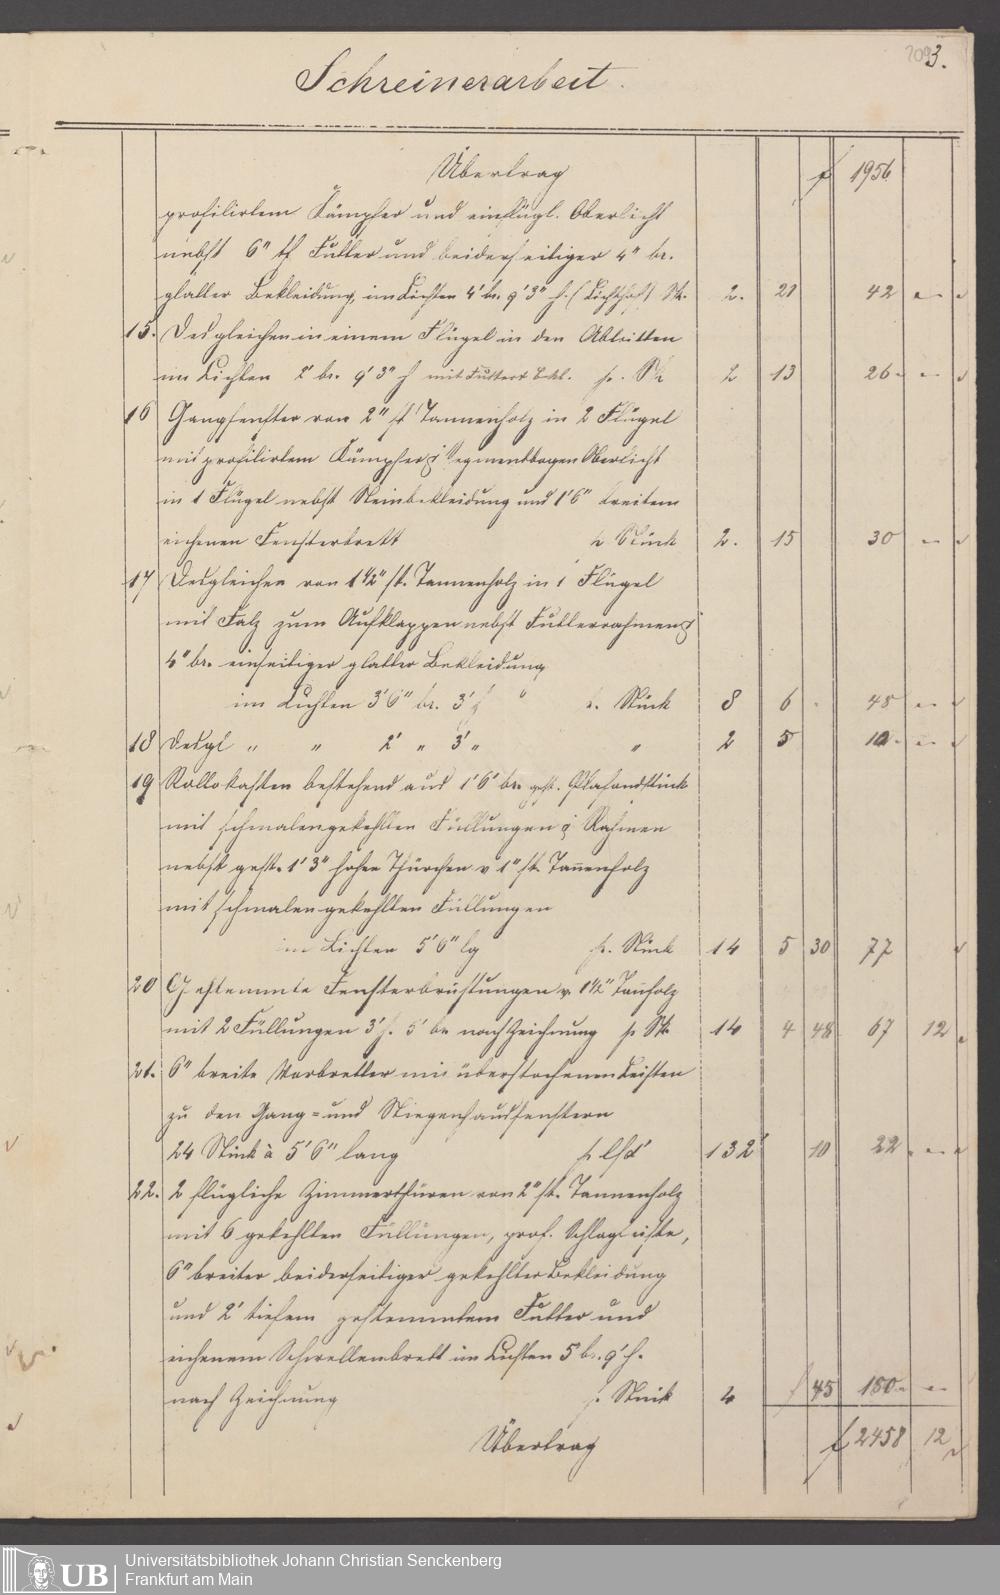 209 3.
Schreinerarbeit.
Übertrag f 1956
profilirtem Kämpfer und einflügl. Oberlicht
nebst 6" tf Futter und beiderseitiger 4" br.
glatter Bekleidung, im Lichten 4' br. 9' 3" h. (Lichthof) Stk. 2. 21 42 " "
15. Desgleichen in einem Flügel in den Abtritten
im Lichten 2' br. 9' 3" h mit Futter & Bekl. p. Stk 2 13 26 " "
16 Gangfenster von 2" st Tannenholz in 2 Flügel
mit profilirtem Kämpfer & Segmentbogen Oberlicht
in 1 Flügel nebst Steinbekleidung und 1' 6" breitem
eichenen Fensterbrett p Stück 2. 15 30 " "
17 Desgleichen von 1 1/2" st. Tannenholz in 1 Flügel
mit Falz zum Aufklappen nebst Futterrahmen &
4" br. einseitiger glatter Bekleidung
im Lichten 3' 6" br. 3' h " p. Stück 8 6 48 " "
18 Desgl " " 2' " 3' " " 2 5 10 " "
19 Rollokasten bestehend aus 1' 6" br. gest. Plafondstück
mit schmalen gekehlten Füllungen & Rahmen
nebst gest. 1' 3" hohen Thürchen v 1" st. Tannenholz
mit schmalen gekehlten Füllungen
im Lichten 5' 6" lg p. Stück 14 5 30 77
20 Gestemmte Fensterbrüstungen v. 1 1/2" Tannholz
mit 2 Füllungen 3' h. 5' br nach Zeichnung p Stk 14 4 48 67 12
21. 6" breite Vorbretter mit überstochenen Leisten
zu den Gang- und Stiegenhausfenstern
24 Stück à 5' 6" lang p lfd' 132' 10 22 " "
22. 2 flügliche Zimmerthüren von 2" st. Tannenholz
mit 6 gekehlten Füllungen, prof. Schlagleiste,
6" breiter beiderseitiger gekehlter Bekleidung
und 2' tiefem gestemmtem Futter und
eichenem Schwellenbrett im Lichten 5' br. 9' h.
nach Zeichnung p. Stück 4 f 45 180 " "
Übertrag f 2458 12
UB Universitätsbibliothek Johann Christian Senckenberg
Frankfurt am Main